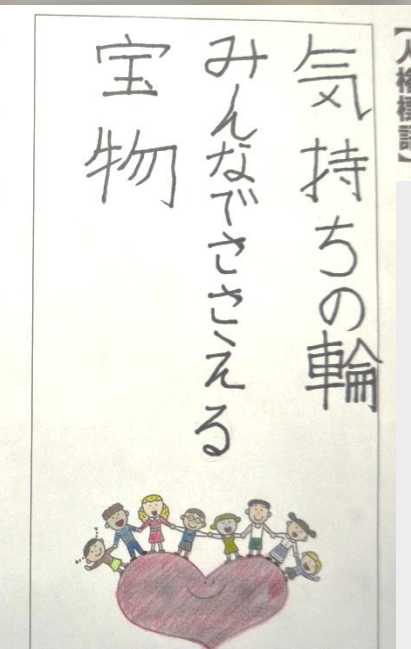 【人権標語】
気持ちの輪
みんなでささえる
宝物